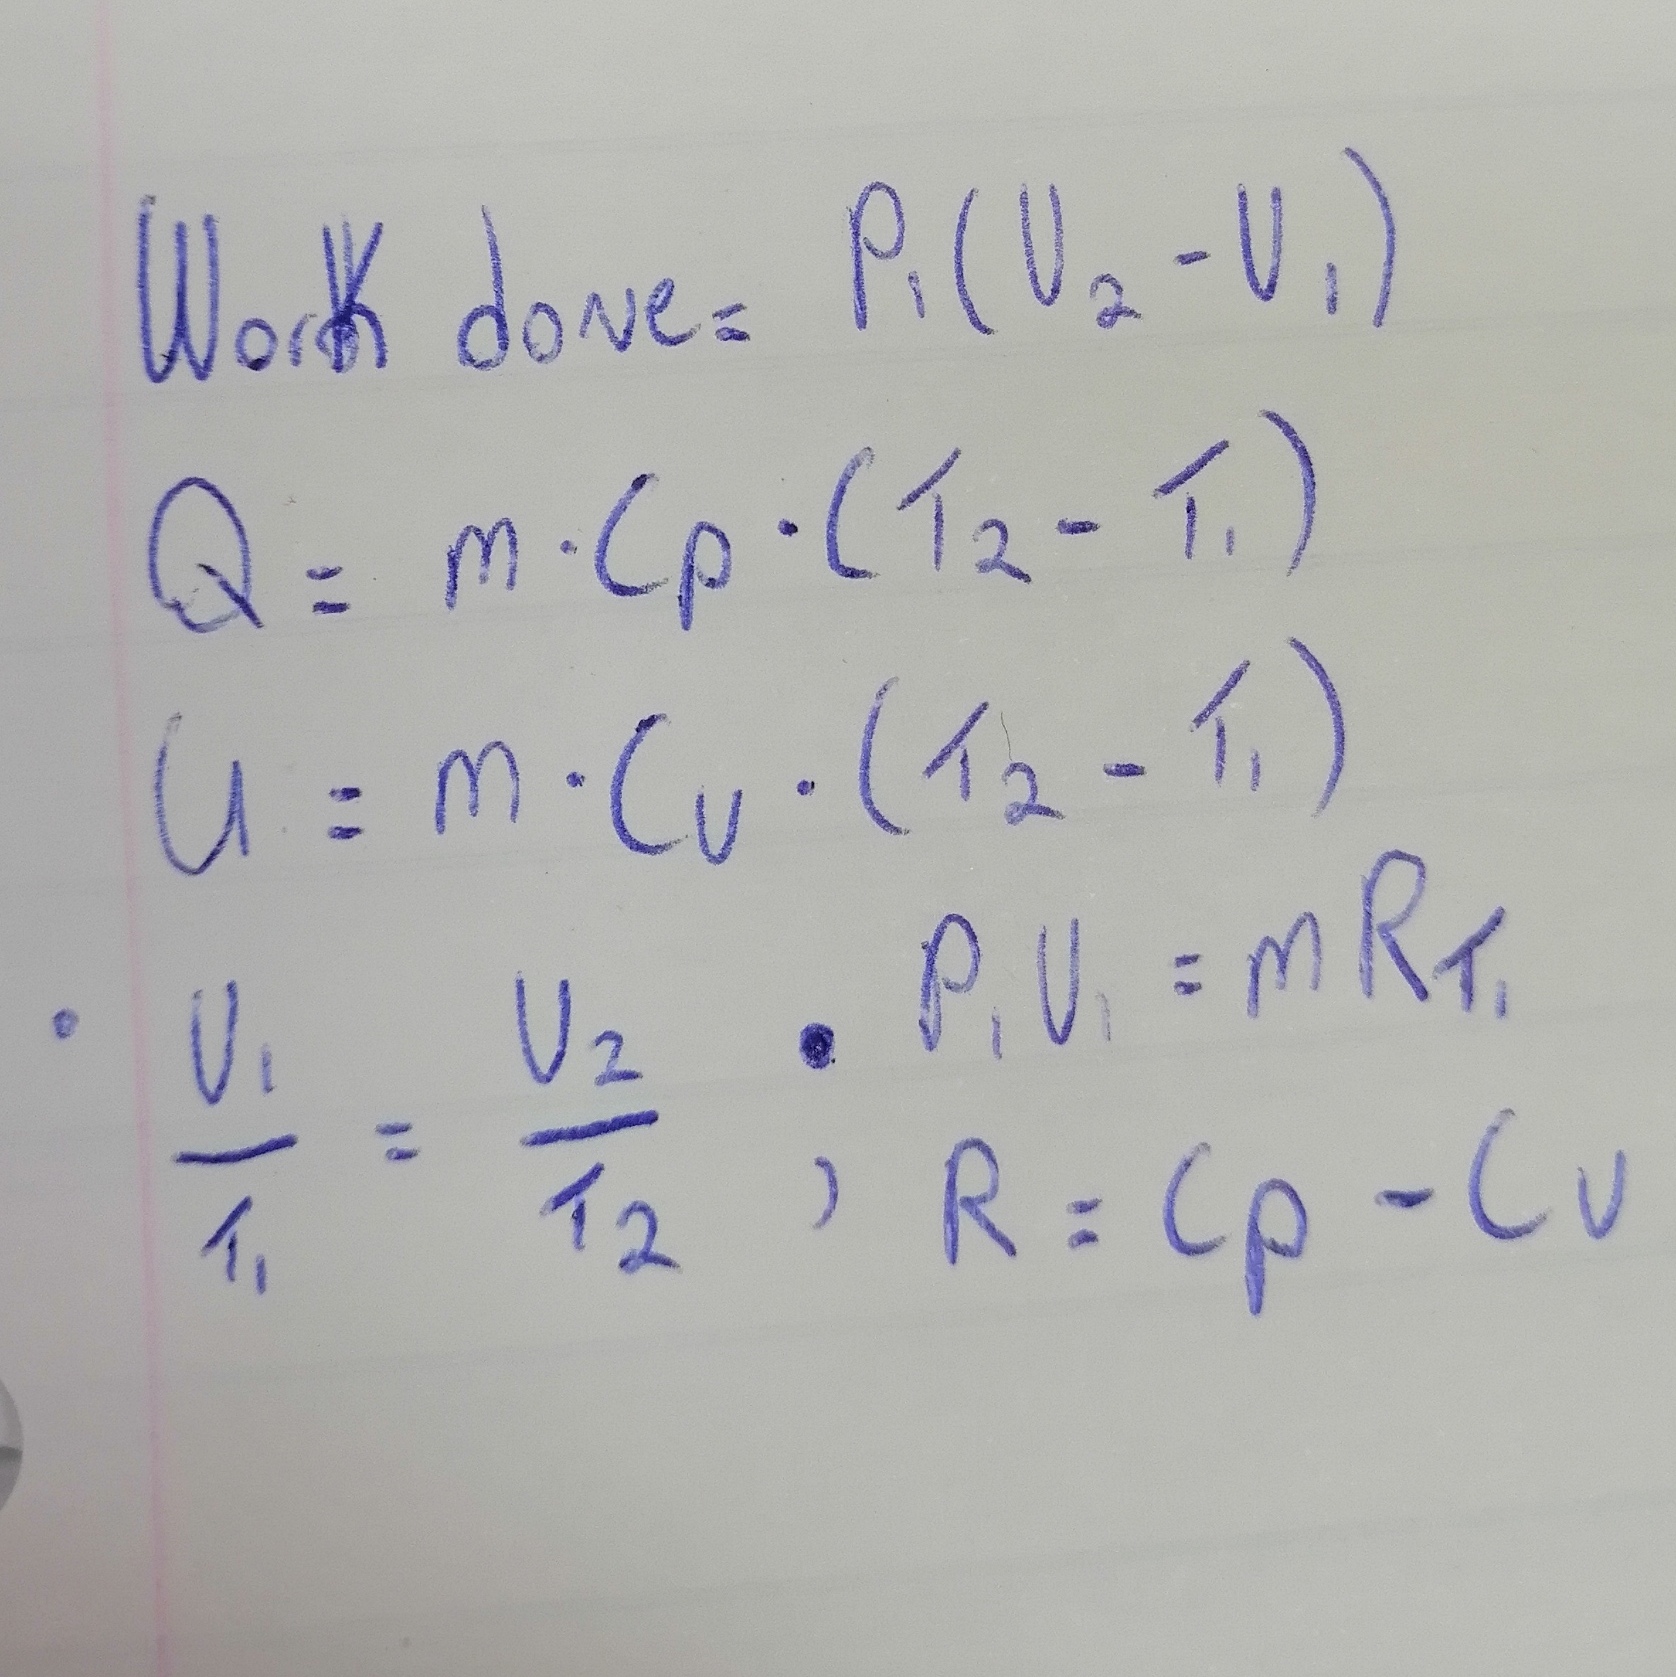 Work done = P₁(V₂ - V₁)
Q = m · Cp · (T₂ - T₁)
U = m · Cv · (T₂ - T₁)
• V₁/T₁ = V₂/T₂ • P₁V₁ = mRT₁
, R = Cp - Cv